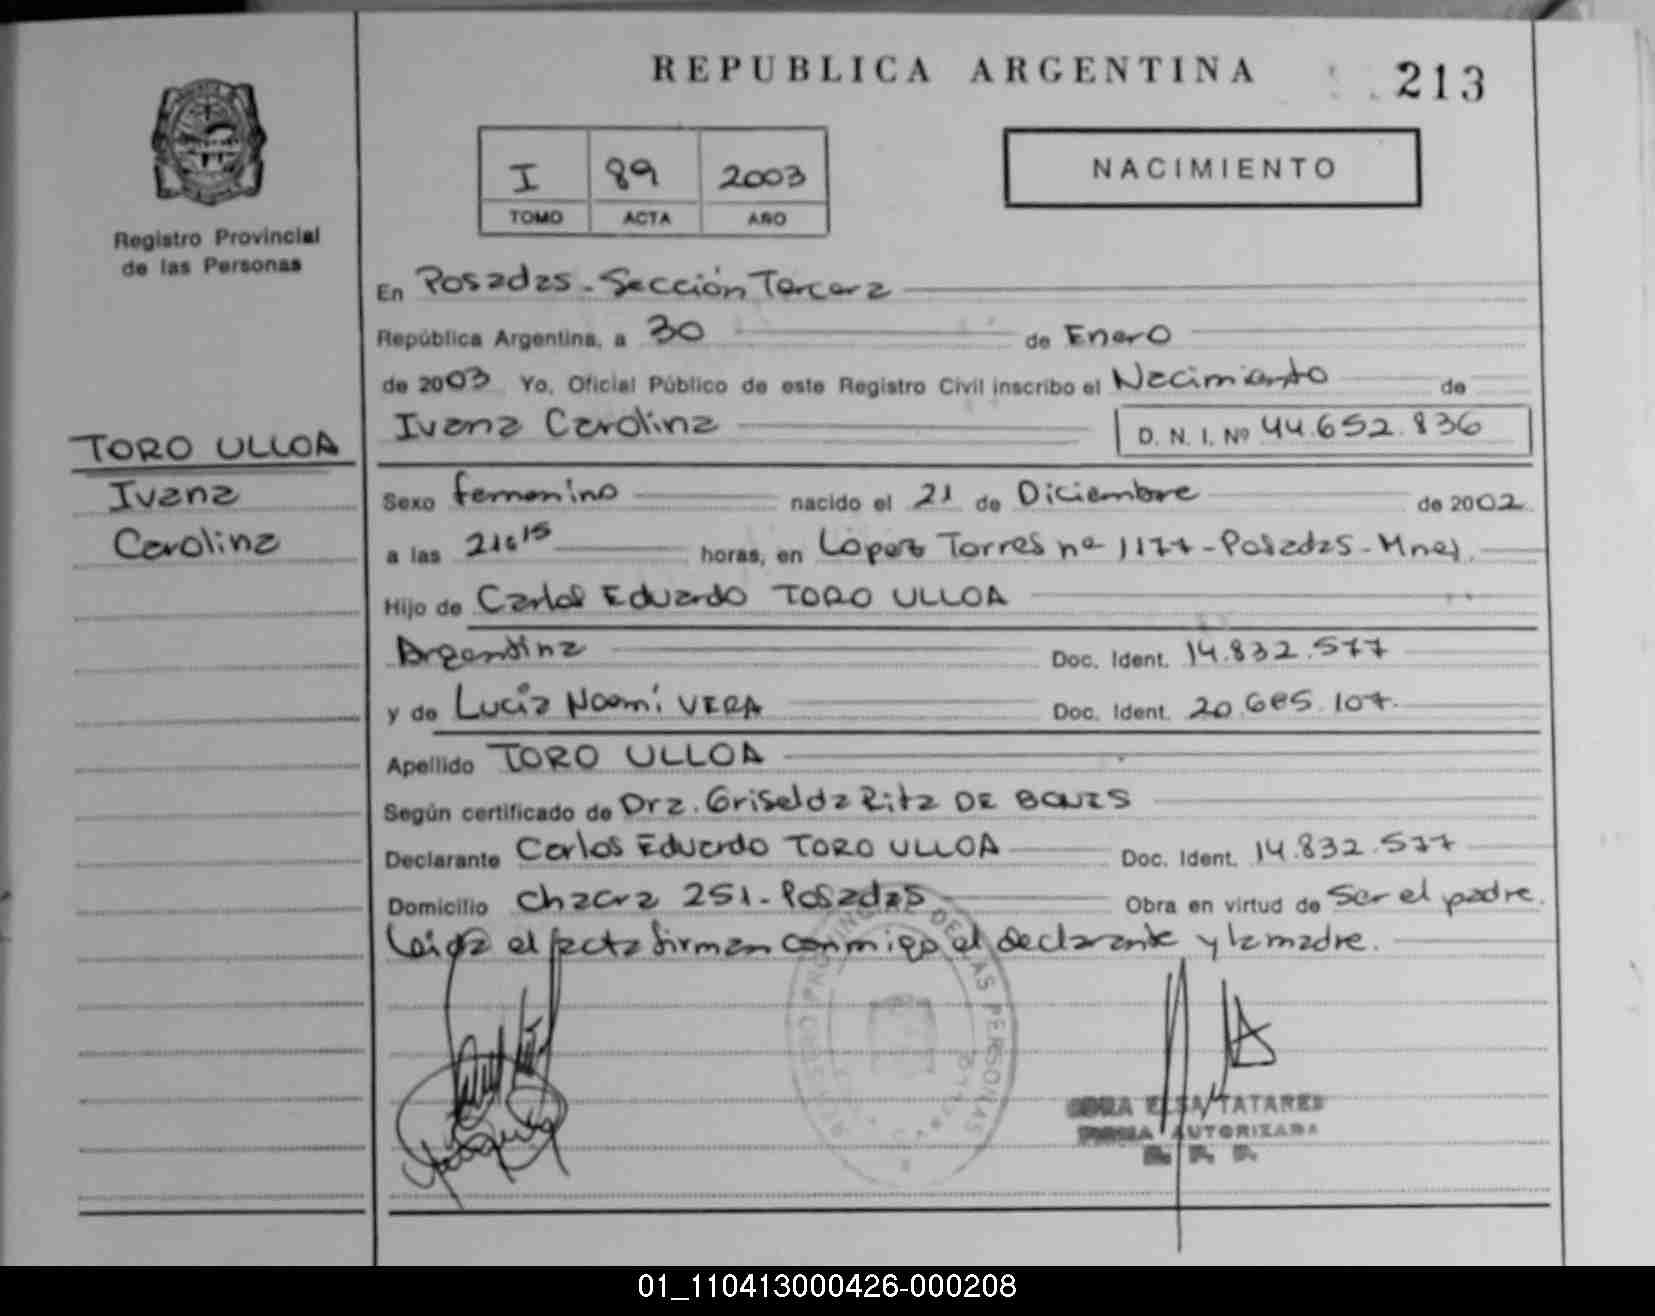 REPUBLICA ARGENTINA
213
I 89 2003
TOMO ACTA AÑO
NACIMIENTO
Registro Provincial
de las Personas
En Posadas - Sección Tercera
República Argentina, a 30 de Enero
de 2003 Yo, Oficial Público de este Registro Civil inscribo el Nacimiento de
Ivana Carolina D. N. I. Nº 44.652.836
TORO ULLOA
Ivana
Carolina
Sexo femenino nacido el 21 de Diciembre de 2002
a las 21:15 horas, en Lopez Torres nº 1177 - Posadas - Mnes.
Hijo de Carlos Eduardo TORO ULLOA
Argentina Doc. Ident. 14.832.577
y de Lucia Noemí VERA Doc. Ident. 20.685.107.
Apellido TORO ULLOA
Según certificado de Dra. Griselda Rita DE
Declarante Carlos Eduardo TORO ULLOA Doc. Ident. 14.832.577
Domicilio Chacra 251 - Posadas Obra en virtud de Ser el padre.
Leida el acta firman conmigo el declarante y la madre.
REGISTRO PROVINCIAL DE LAS PERSONAS
ELSA TATAREN
FIRMA AUTORIZADA
R. P. P.
01_110413000426-000208